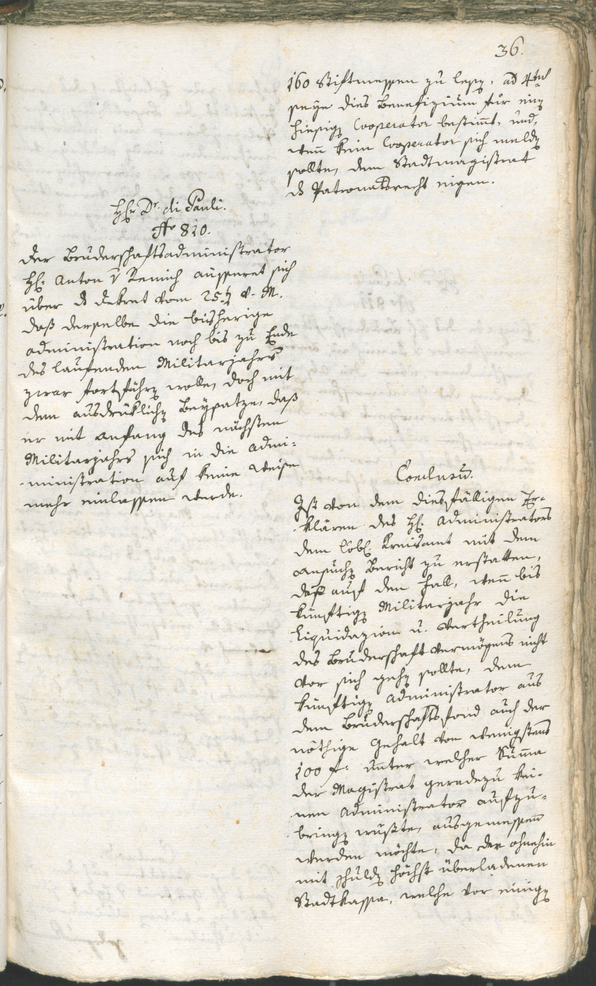 36.
160 Stiftmessen zu lesen, ad 4tens
seye dies Benefizium für ein
hiesigen Cooperator bestimt, und
wen kein Cooperator sich melden
sollte, dem Stadtmagistrat
ds Patronatsrecht eigen.
H. Dr. di Pauli.
No 810.
Der Bruderschaftsadministrator
H. Anton v Remich äusseret sich
über ds Dekret vom 25t v. M.
daß derselbe die bisherige
administration noch bis zu Ende
des laufenden Militarjahrs
zwar fortführen wolle, doch mit
dem ausdrüklichen Beysatze, daß
er mit Anfang des nächsten
Militarjahrs sich in die Admi-
ministration auf keine weise
mehr einlassen werde.
Conclusum.
Ist von dem diesfälligen Er-
klären des H. Administrators
dem löbl. Kreisamt mit dem
Ansuchen Bericht zu erstatten,
daß auf den Fall, wen bis
künftigen Militarjahr die
Liquidazion u. Vertheilung
des Bruderschaft vermögens nicht
vor sich gehen sollte, dem
künftigen Administrator aus
dem Bruderschafts fond auch der
nöthige Gehalt von wenigstens
100 f. unter welcher Summa
der Magistrat geradezu kei-
nen Administrator aufzu-
bringen wüßte, ausgemessen
werden möchte, da der ohnehin
mit schulden höchst überladenen
Stadtkassa, welche vor einigen